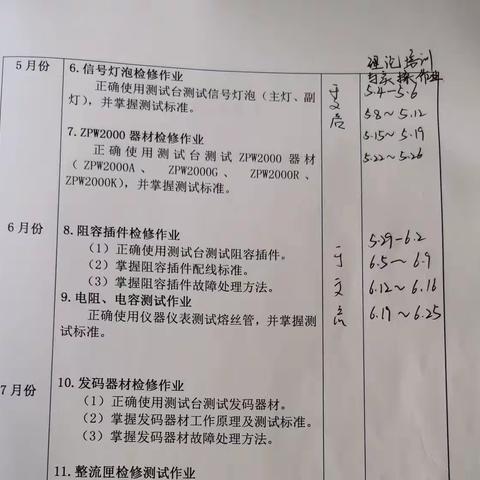 理论培训
与实操作业
5月份
6.信号灯泡检修作业
正确使用测试台测试信号灯泡（主灯、副
灯），并掌握测试标准。
7.ZPW2000 器材检修作业
正确使用测试台测试 ZPW2000 器材
（ZPW2000A、 ZPW2000G、 ZPW2000R、
ZPW2000K），并掌握测试标准。
5.4—5.6
5.8～5.12
5.15～5.19
5.22～5.26
6月份
8.阻容插件检修作业
（1）正确使用测试台测试阻容插件。
（2）掌握阻容插件配线标准。
（3）掌握阻容插件故障处理方法。
9.电阻、电容测试作业
正确使用仪器仪表测试熔丝管，并掌握测
试标准。
5.29—6.2
6.5～6.9
6.12～6.16
6.19～6.25
7月份
10.发码器材检修作业
（1）正确使用测试台测试发码器材。
（2）掌握发码器材工作原理及测试标准。
（3）掌握发码器材故障处理方法。
11.整流匣检修测试作业